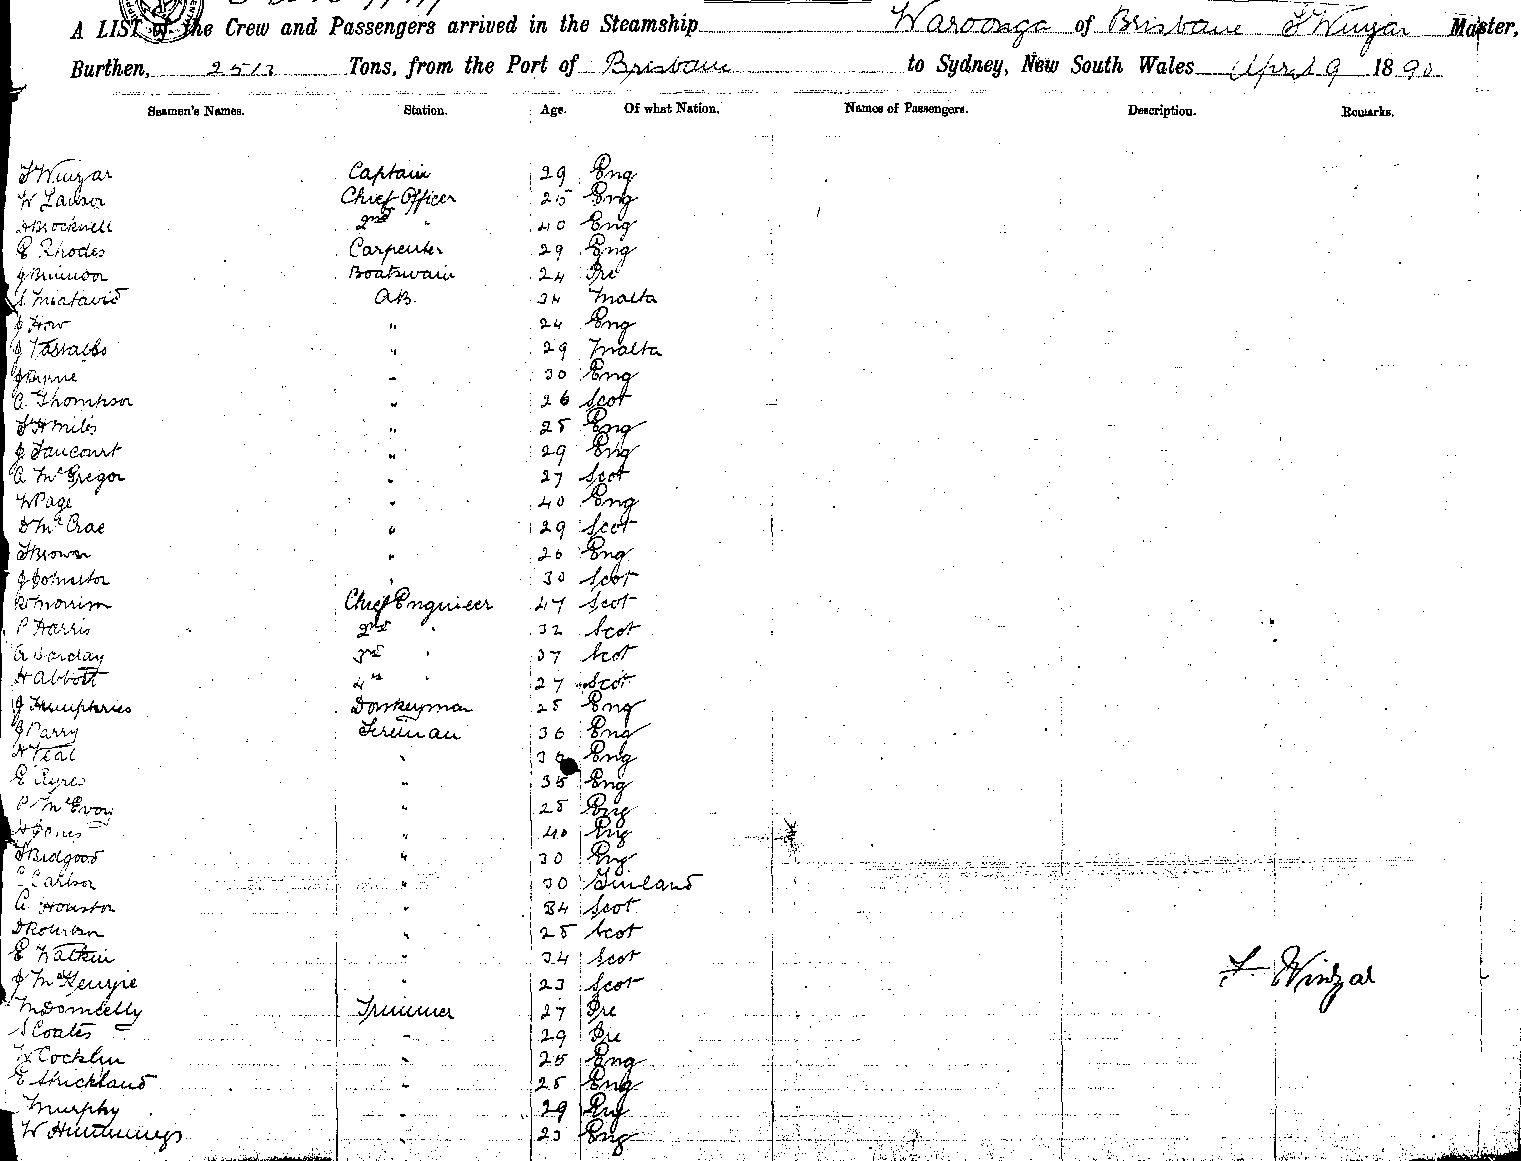 A LIST of the Crew and Passengers arrived in the Steamship Waroonga of Brisbane F Winzar Master,
Burthen, 2513 Tons, from the Port of Brisbane to Sydney, New South Wales April 9 1890
Seamen's Names. Station. Age. Of what Nation. Names of Passengers. Description. Remarks.
F Winzar Captain 29 Eng
W Lawson Chief Officer 25 Eng
Brocknell 2nd " 40 Eng
E Rhodes Carpenter 29 Eng
J Boatswain 24 Ire
S AB 34 Malta
J How " 24 Eng
J " 29 Malta
J Byrne " 30 Eng
A Thompson " 26 Scot
F H Miles " 25 Eng
J Faucourt " 29 Eng
A McGregor " 27 Scot
W Page " 40 Eng
D McCrae " 29 Scot
F Brown " 26 Eng
J Johnston " 30 Scot
Morrison Chief Engineer 47 Scot
P Harris 2nd " 32 Scot
A Barclay 3rd " 37 Scot
H Abbott 4th " 27 Scot
J Humphries Donkeyman 25 Eng
J Parry Fireman 36 Eng
H Veal " Eng
E Ayres " 35 Eng
P McEvoy " 25 Eng
H Jones " 40 Eng
F Bidgood " 30 Eng
Carlson " 30 Finland
A Houston " 34 Scot
" 25 Scot
E Watkin " 34 Scot
J McKenzie " 23 Scot F Winzar
M Donnelly Trimmer 27 Ire
S Coates " 29 Ire
W Cocklin " 25 Eng
E Strickland " 25 Eng
Murphy " 29 Eng
W Hummings " 23 Eng